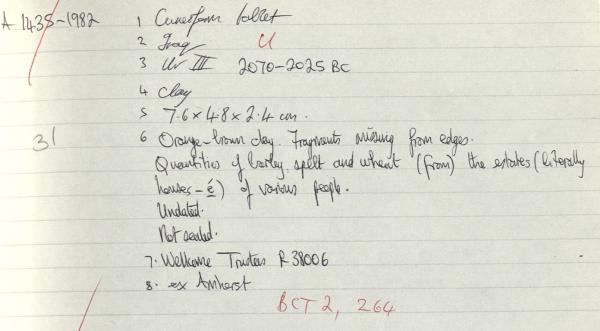 A 1435-1982 1 Cuneiform tablet
2 Iraq U
3 Ur III 2070-2025 BC
4 Clay
5 7.6 x 4.8 x 2.4 cm.
31
6 Orange-brown clay. Fragments missing from edges.
Quantities of barley, spelt and wheat (from) the estates (literally
houses - é) of various people.
Undated.
Not sealed.
7. Wellcome Trustees R 38006
8. ex Amherst
BCT 2, 264